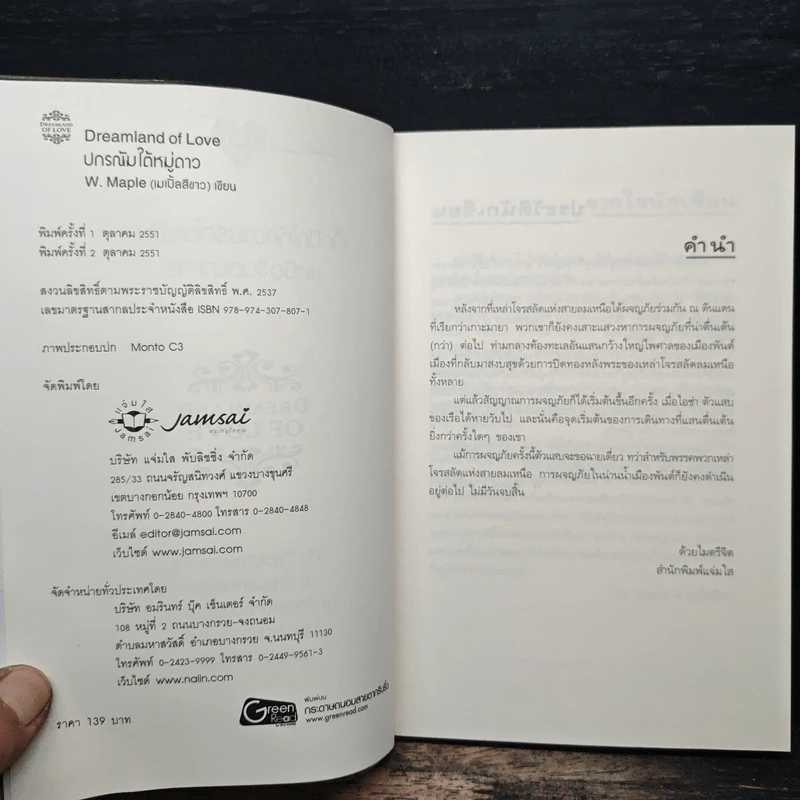 DREAMLAND
OF LOVE
Dreamland of Love
ปกรณัมใต้หมู่ดาว
W. Maple (เมเปิ้ลสีขาว) เขียน
พิมพ์ครั้งที่ 1 ตุลาคม 2551
พิมพ์ครั้งที่ 2 ตุลาคม 2551
สงวนลิขสิทธิ์ตามพระราชบัญญัติลิขสิทธิ์ พ.ศ. 2537
เลขมาตรฐานสากลประจำหนังสือ ISBN 978-974-307-807-1
ภาพประกอบปก Monto C3
จัดพิมพ์โดย
แจ่มใส
Jamsai
Jamsai
บริษัท แจ่มใส พับลิชชิ่ง จำกัด
285/33 ถนนจรัญสนิทวงศ์ แขวงบางขุนศรี
เขตบางกอกน้อย กรุงเทพฯ 10700
โทรศัพท์ 0-2840-4800 โทรสาร 0-2840-4848
อีเมล์ editor@jamsai.com
เว็บไซต์ www.jamsai.com
จัดจำหน่ายทั่วประเทศโดย
บริษัท อมรินทร์ บุ๊ค เซ็นเตอร์ จำกัด
108 หมู่ที่ 2 ถนนบางกรวย-จงถนอม
ตำบลมหาสวัสดิ์ อำเภอบางกรวย จ.นนทบุรี 11130
โทรศัพท์ 0-2423-9999 โทรสาร 0-2449-9561-3
เว็บไซต์ www.naiin.com
ราคา 139 บาท
Green
Read
พิมพ์บน
กระดาษถนอมสายตากรีนรี้ด
www.greenread.com
คำนำ
หลังจากที่เหล่าโจรสลัดแห่งสายลมเหนือได้ผจญภัยร่วมกัน ณ ดินแดน
ที่เรียกว่าเกาะมายา พวกเขาก็ยังคงเสาะแสวงหาการผจญภัยที่น่าตื่นเต้น
(กว่า) ต่อไป ท่ามกลางท้องทะเลอันแสนกว้างใหญ่ไพศาลของเมืองพันต์
เมืองที่กลับมาสงบสุขด้วยการปิดทองหลังพระของเหล่าโจรสลัดลมเหนือ
ทั้งหลาย
แต่แล้วสัญญาณการผจญภัยก็ได้เริ่มต้นขึ้นอีกครั้ง เมื่อไอซ่า ตัวแสบ
ของเรือได้หายวับไป และนั่นคือจุดเริ่มต้นของการเดินทางที่แสนตื่นเต้น
ยิ่งกว่าครั้งใดๆ ของเขา
แม้การผจญภัยครั้งนี้ตัวแสบจะขอฉายเดี่ยว ทว่าสำหรับพรรคพวกเหล่า
โจรสลัดแห่งสายลมเหนือ การผจญภัยในน่านน้ำเมืองพันต์ก็ยังคงดำเนิน
อยู่ต่อไป ไม่มีวันจบสิ้น
ด้วยไมตรีจิต
สำนักพิมพ์แจ่มใส